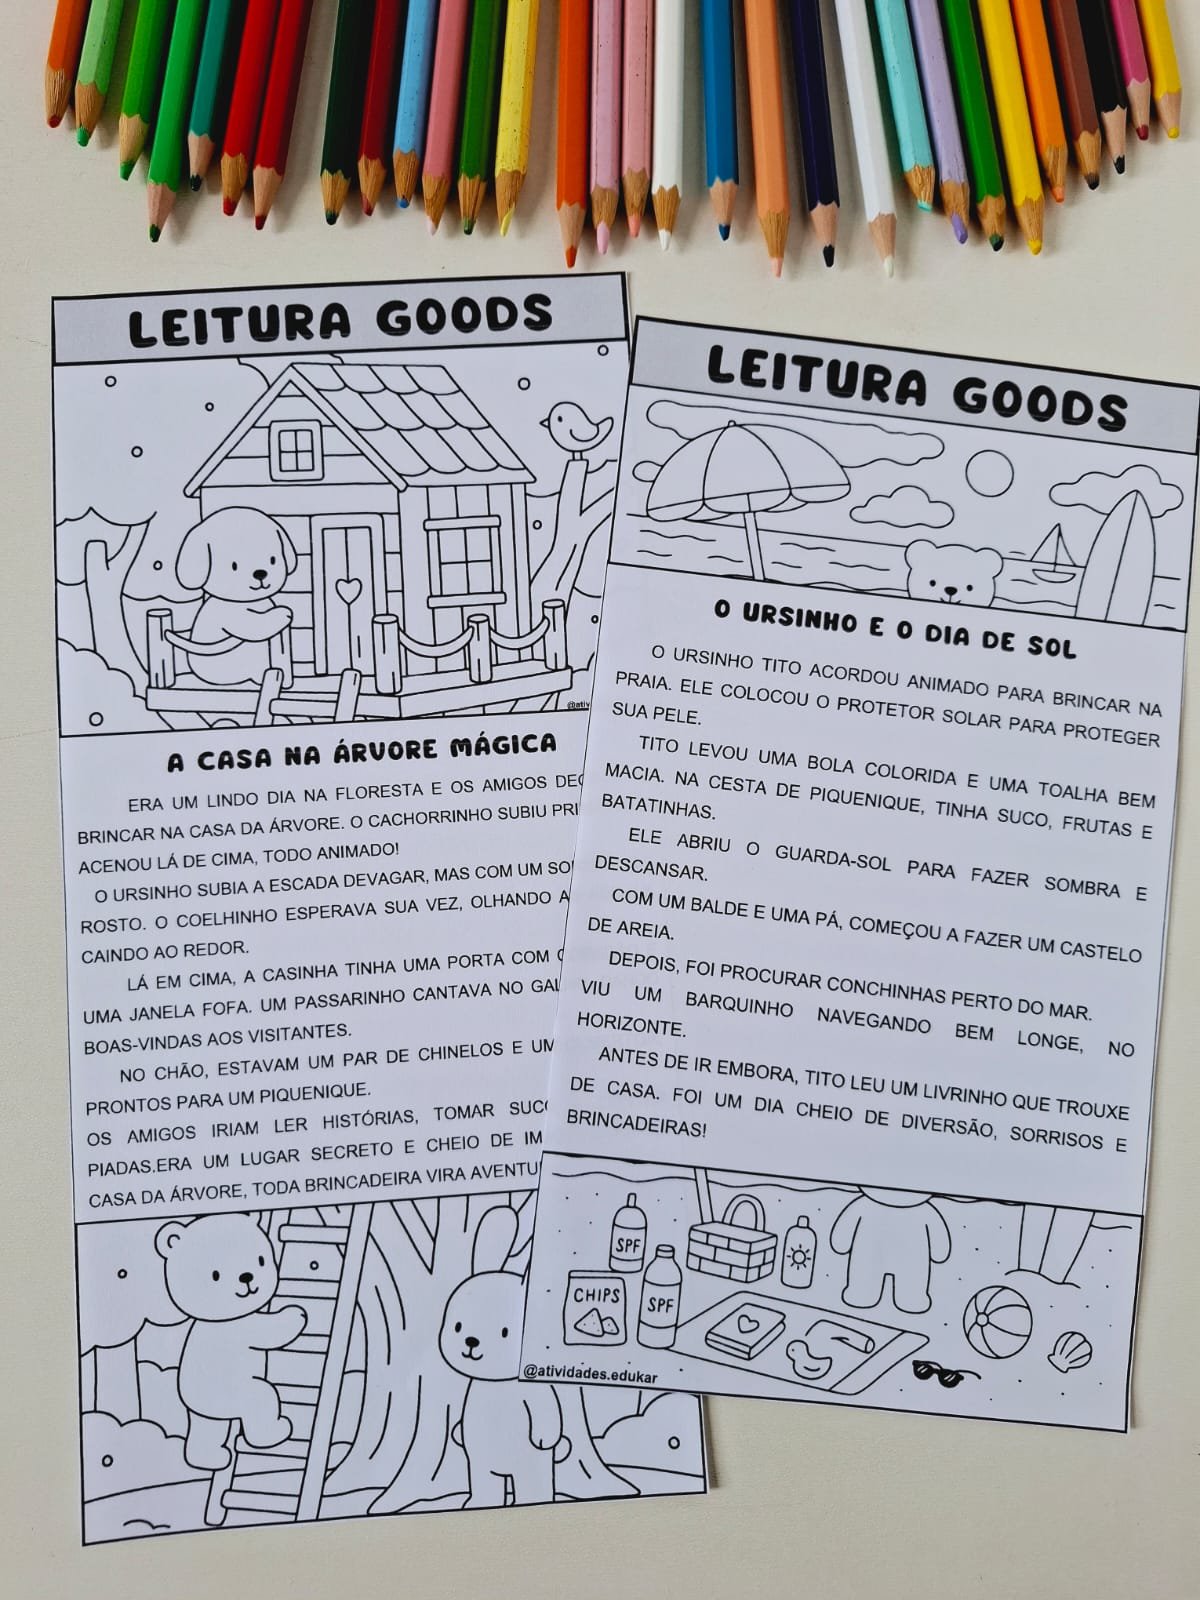 LEITURA GOODS
@ativ
A CASA NA ÁRVORE MÁGICA
ERA UM LINDO DIA NA FLORESTA E OS AMIGOS
BRINCAR NA CASA DA ÁRVORE. O CACHORRINHO SUBIU
ACENOU LÁ DE CIMA, TODO ANIMADO!
O URSINHO SUBIA A ESCADA DEVAGAR, MAS COM UM
ROSTO. O COELHINHO ESPERAVA SUA VEZ, OLHANDO
CAINDO AO REDOR.
LÁ EM CIMA, A CASINHA TINHA UMA PORTA COM
UMA JANELA FOFA. UM PASSARINHO CANTAVA NO
BOAS-VINDAS AOS VISITANTES.
NO CHÃO, ESTAVAM UM PAR DE CHINELOS E
PRONTOS PARA UM PIQUENIQUE.
OS AMIGOS IRIAM LER HISTÓRIAS, TOMAR
PIADAS.ERA UM LUGAR SECRETO E CHEIO DE
CASA DA ÁRVORE, TODA BRINCADEIRA VIRA
LEITURA GOODS
O URSINHO E O DIA DE SOL
O URSINHO TITO ACORDOU ANIMADO PARA BRINCAR NA
PRAIA. ELE COLOCOU O PROTETOR SOLAR PARA PROTEGER
SUA PELE.
TITO LEVOU UMA BOLA COLORIDA E UMA TOALHA BEM
MACIA. NA CESTA DE PIQUENIQUE, TINHA SUCO, FRUTAS E
BATATINHAS.
ELE ABRIU O GUARDA-SOL PARA FAZER SOMBRA E
DESCANSAR.
COM UM BALDE E UMA PÁ, COMEÇOU A FAZER UM CASTELO
DE AREIA.
DEPOIS, FOI PROCURAR CONCHINHAS PERTO DO MAR.
VIU UM BARQUINHO NAVEGANDO BEM LONGE, NO
HORIZONTE.
ANTES DE IR EMBORA, TITO LEU UM LIVRINHO QUE TROUXE
DE CASA. FOI UM DIA CHEIO DE DIVERSÃO, SORRISOS E
BRINCADEIRAS!
SPF
CHIPS
SPF
@atividades.edukar